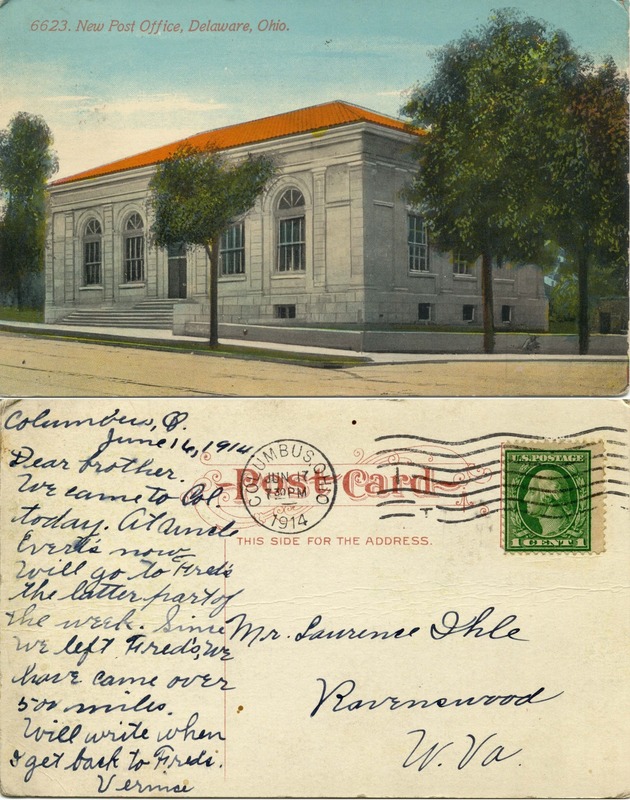 6623. New Post Office, Delaware, Ohio.
Columbus, O.
June 16, 1914
Dear brother.
We came to Col.
today. At Uncle
Evert's now
Will go to Fred's
the latter part of
the week. Since
we left Fred's, We
have came over
500 miles.
Will write when
I get back to Freds.
Vernice
COLUMBUS, OHIO
JUN 17
730 PM
1914
Post Card
THIS SIDE FOR THE ADDRESS.
U.S. POSTAGE
1 CENT 1
Mr. Laurence Ihle
Ravenswood
W. Va.